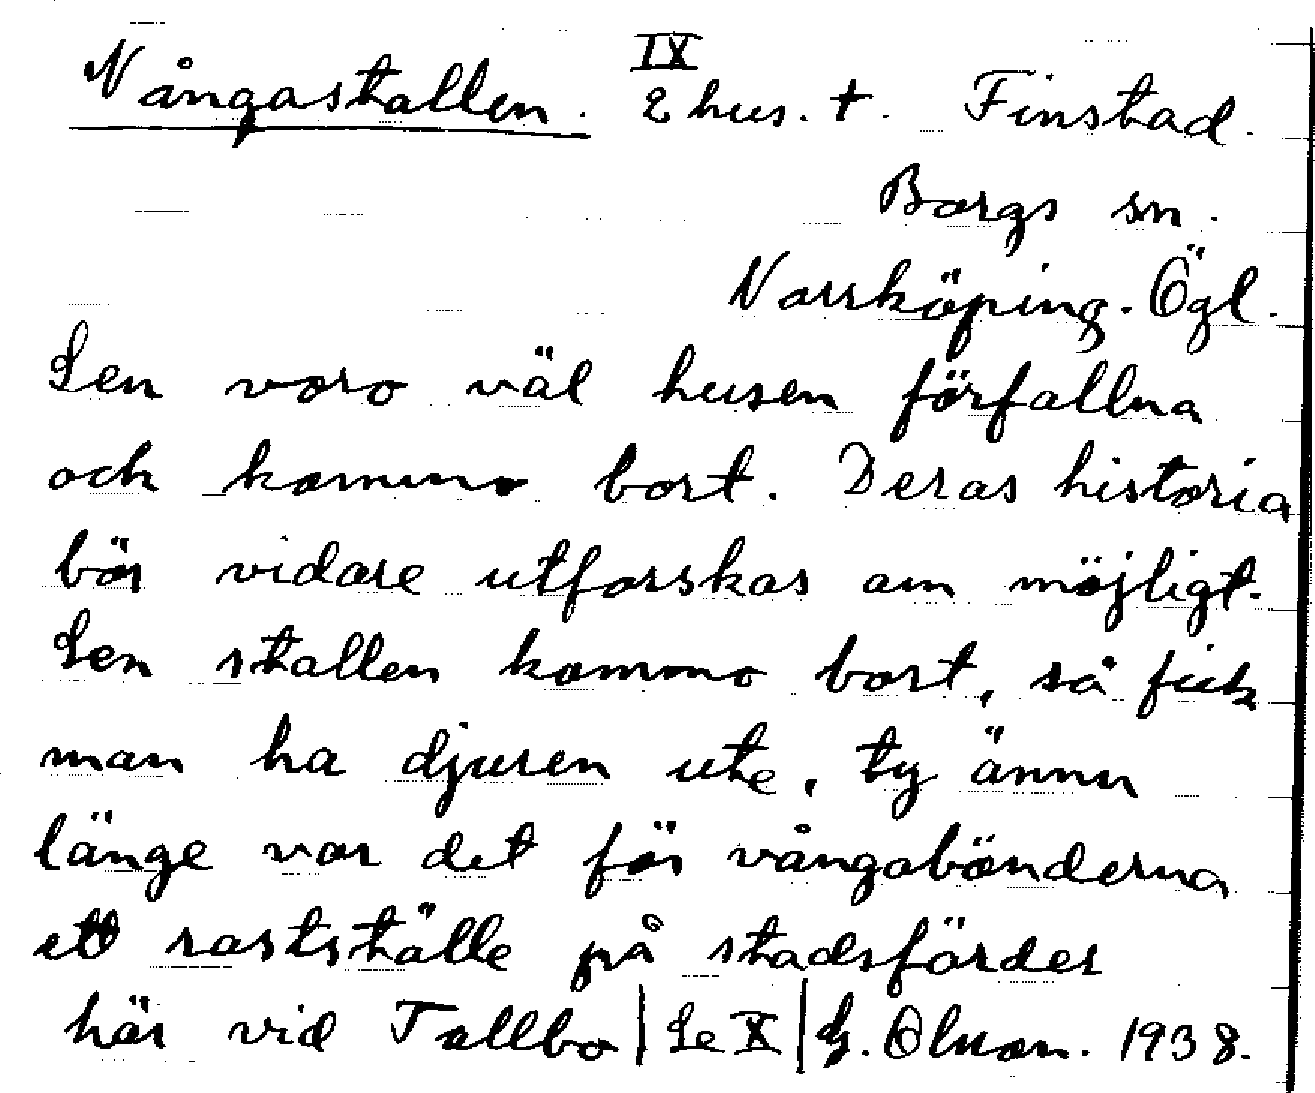 IX
Vångastallen. 2 hus. †. Finstad.
Borgs sn.
Norrköping. Ögl.
Sen voro väl husen förfallna
och kommo bort. Deras historia
bör vidare utforskas om möjligt.
Sen stallen kommo bort, så fick
man ha djuren ute, ty ännu
länge var det för vångabönderna
ett rastställe på stadsfärder
här vid Tallbo | Se X | G. Olsson. 1938.